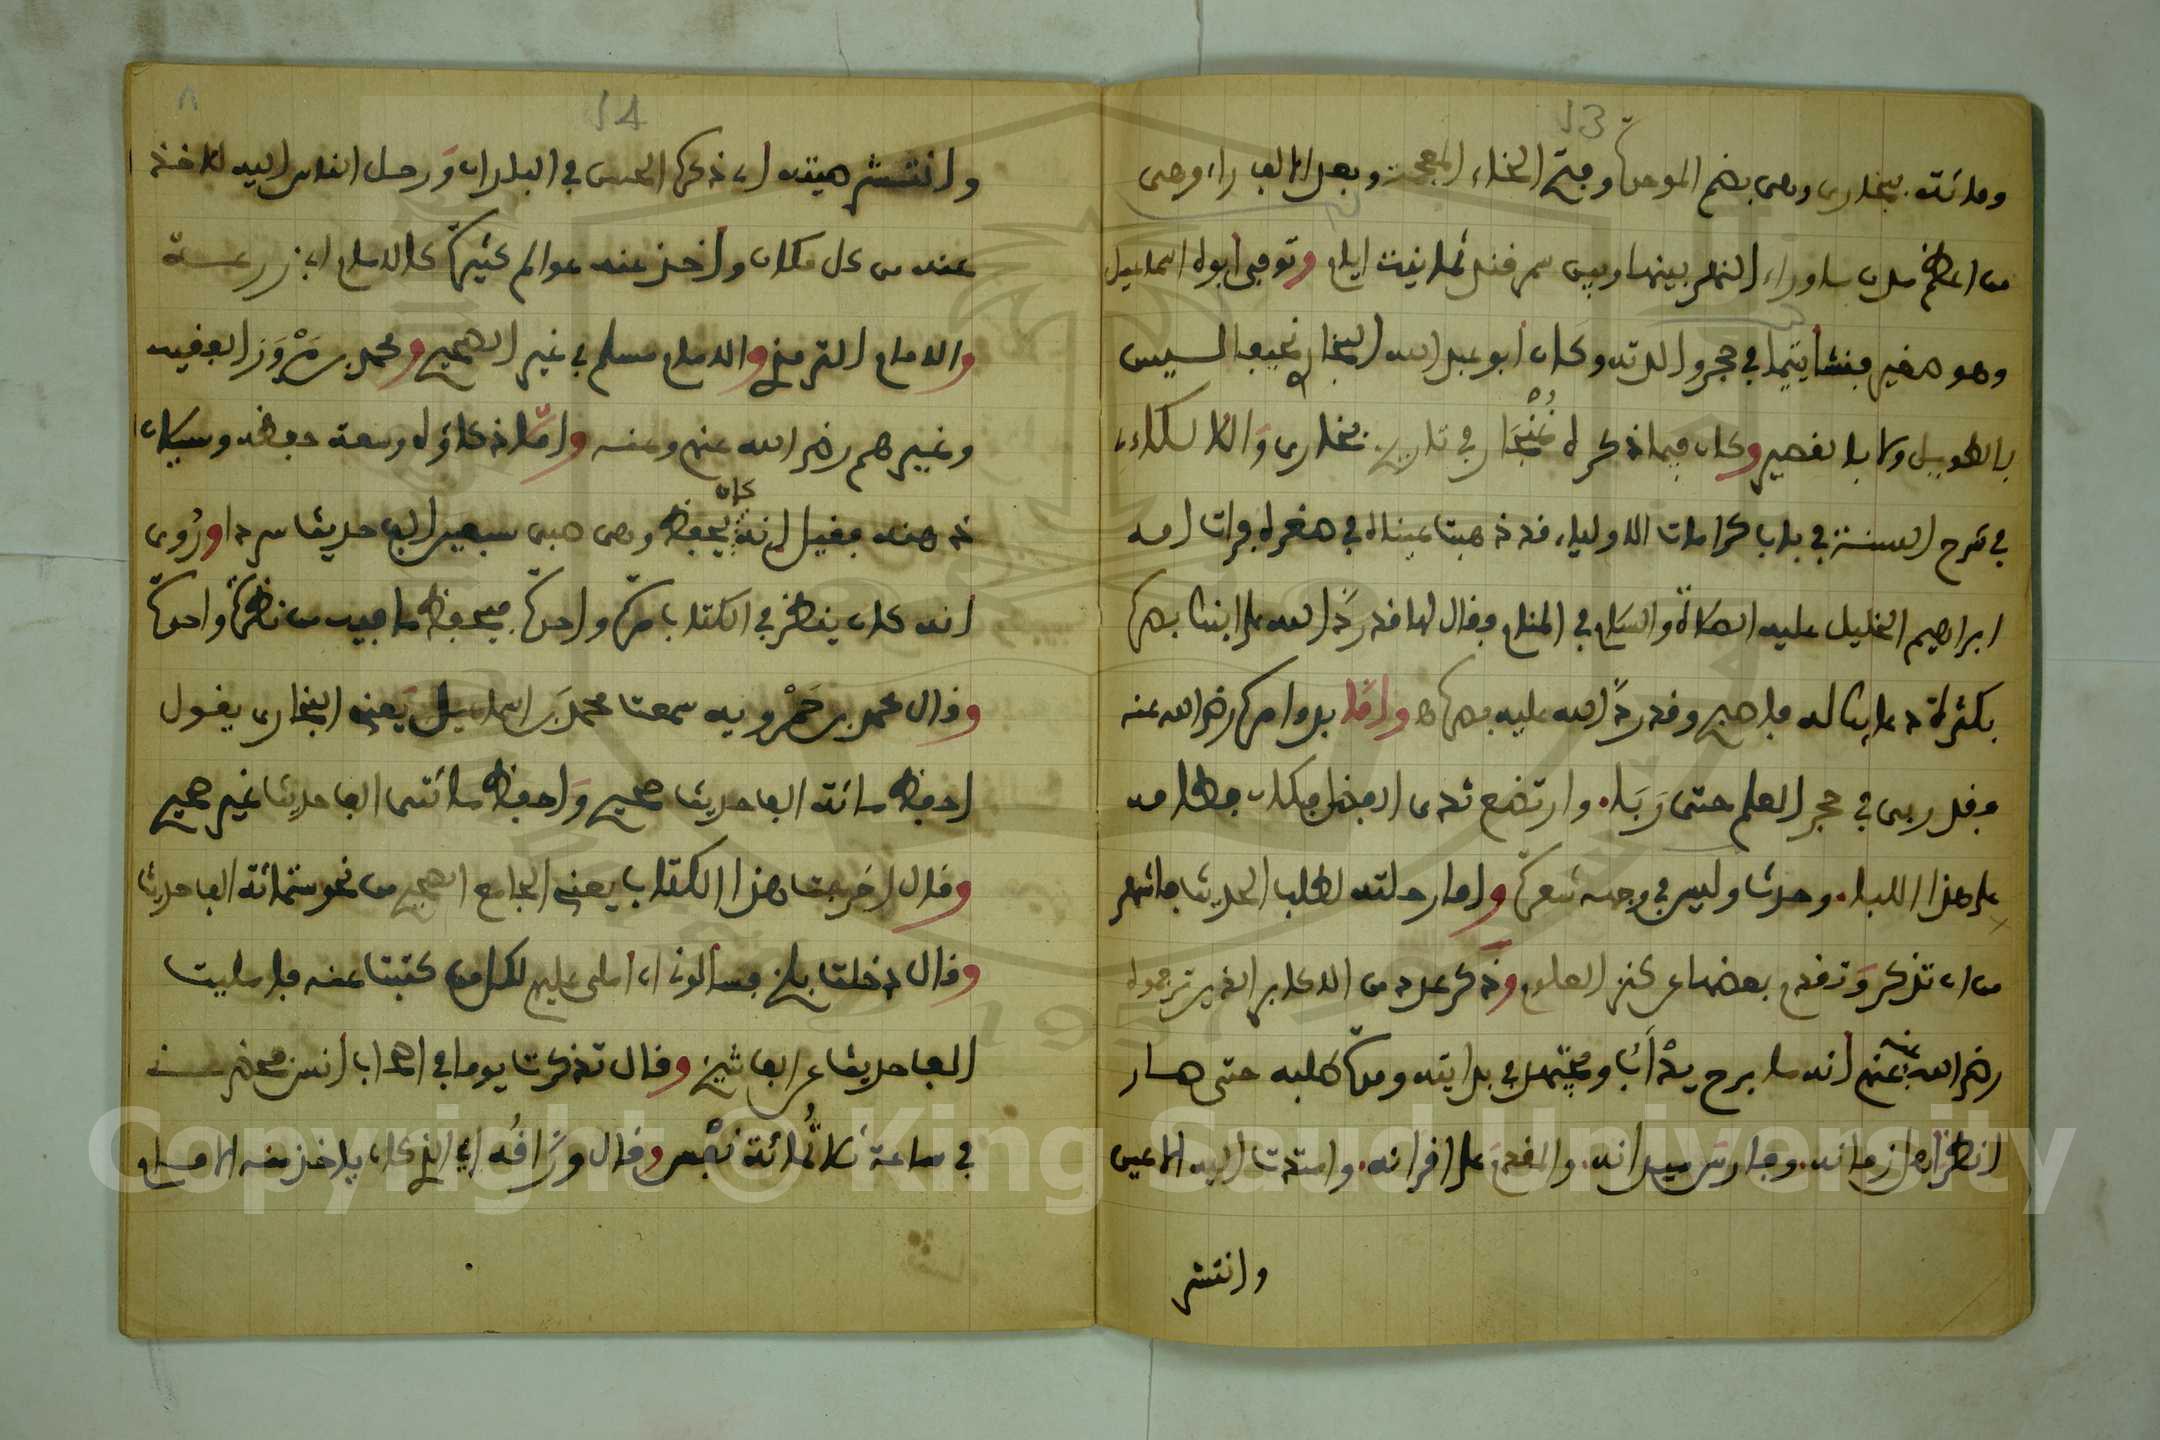 13
ومائة ببخارى وهى بضم الموحدة وفتح الخاء المعجمة وبعد الالف راء وهى
من اعظم مدن ما وراء النهر بينها وبين سمرقند ثمانية ايام وتوفي أبوه اسماعيل
وهو صغير فنشأ يتيما في حجر والدته وكان أبو عبد الله البخاري نحيف الجسم ليس
بالطويل ولا بالقصير وكان فيما ذكره غُنْجَار في تاريخ بخارى واللالكاءى
في شرح السنة في باب كرامات الاولياء قد ذهبت عيناه في صغره فرات امه
ابراهيم الخليل عليه الصلاة والسلام في المنام فقال لها قد ردَّ الله على ابنك بصره
بكثرة دعائك له فاصبح وقد ردَّ الله عليه بصره وامَّا بدو امره رضى الله عنه
فقد ربى في حجر العلم حتى رَبَا. وارتضع ثدى الفضل فكان فطامه
على هذا اللبا. وحدث وليس في وجهه شعرة واما رحلته لطلب الحديث فاشهر
من ان تذكر وتقدم بعضها عن كنز العلوم وذكر عدد من الاكابر الذين ترجموه
رضى الله عنه وعنهم أنه ما برح يدْأَبُ ويجتهد في بدايته ومدة طلبه حتى صار
انظر أهل زمانه. وفارس ميدانه. والمقدم على اقرانه. وامتدت اليه الاعين
وانتشر
14
٨
وانتشر صيته اى ذكره الحسن في البلدان وَرحل الناس اليه للاخذ
عنه من كل مكان وأخذ عنه عوالم كثيرة كالامام ابى زرعة
والامام الترمذي والامام مسلم في غير الصحيح ومحمد بن مَرْوَزَ الفقيه
وغيرهم رضى الله عنهم وعنه وامَّا ذكاؤه وسعة حفظه وسيلان
ذهنه فقيل إنه كان يحفظ وهى صبى سبعين الف حديثا سردا ورُوى
انه كان ينظر في الكتاب مرة واحدة فيحفظ ما فيه من نظرة واحدة
وقال محمد بن حَمْرويه سمعت محمد بن اسماعيل يَعنى البخارى يقول
احفظ مائة الف حديث صحيح وَاحفظ مائتى الف حديث غير صحيح
وقال اخرجت هذا الكتاب يعنى الجامع الصحيح من نحو ستمائة الف حديث
وقال دخلت بلخ فسألونى ان أملى عليهم لكل من كتبت عنه فامليت
الف حديث عن الف شيخ وقال تذكرت يوما في اصحاب أنس فحضرنى
في ساعة ثلاثمائة نفْس وقال ورَّاقُه اى الذي كان ياخذ منه الامام
Copyright © King Saud University
1957